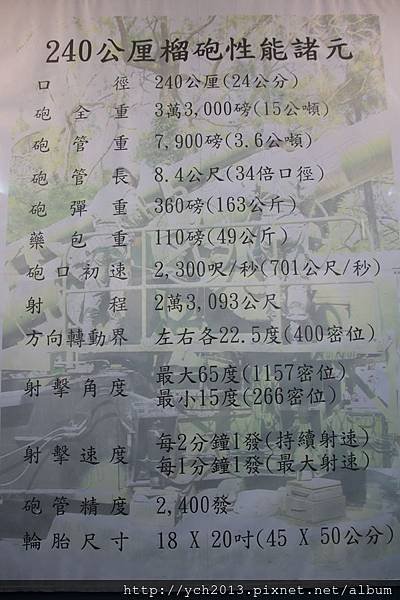 240公厘榴砲性能諸元
口徑 240公厘(24公分)
砲全重 3萬3,000磅(15公噸)
砲管重 7,900磅(3.6公噸)
砲管長 8.4公尺(34倍口徑)
砲彈重 360磅(163公斤)
藥包重 110磅(49公斤)
砲口初速 2,300呎/秒(701公尺/秒)
射程 2萬3,093公尺
方向轉動界 左右各22.5度(400密位)
射擊角度 最大65度(1157密位)
最小15度(266密位)
射擊速度 每2分鐘1發(持續射速)
每1分鐘1發(最大射速)
砲管精度 2,400發
輪胎尺寸 18 X 20吋(45 X 50公分)
http://ych2013.pixnet.net/album